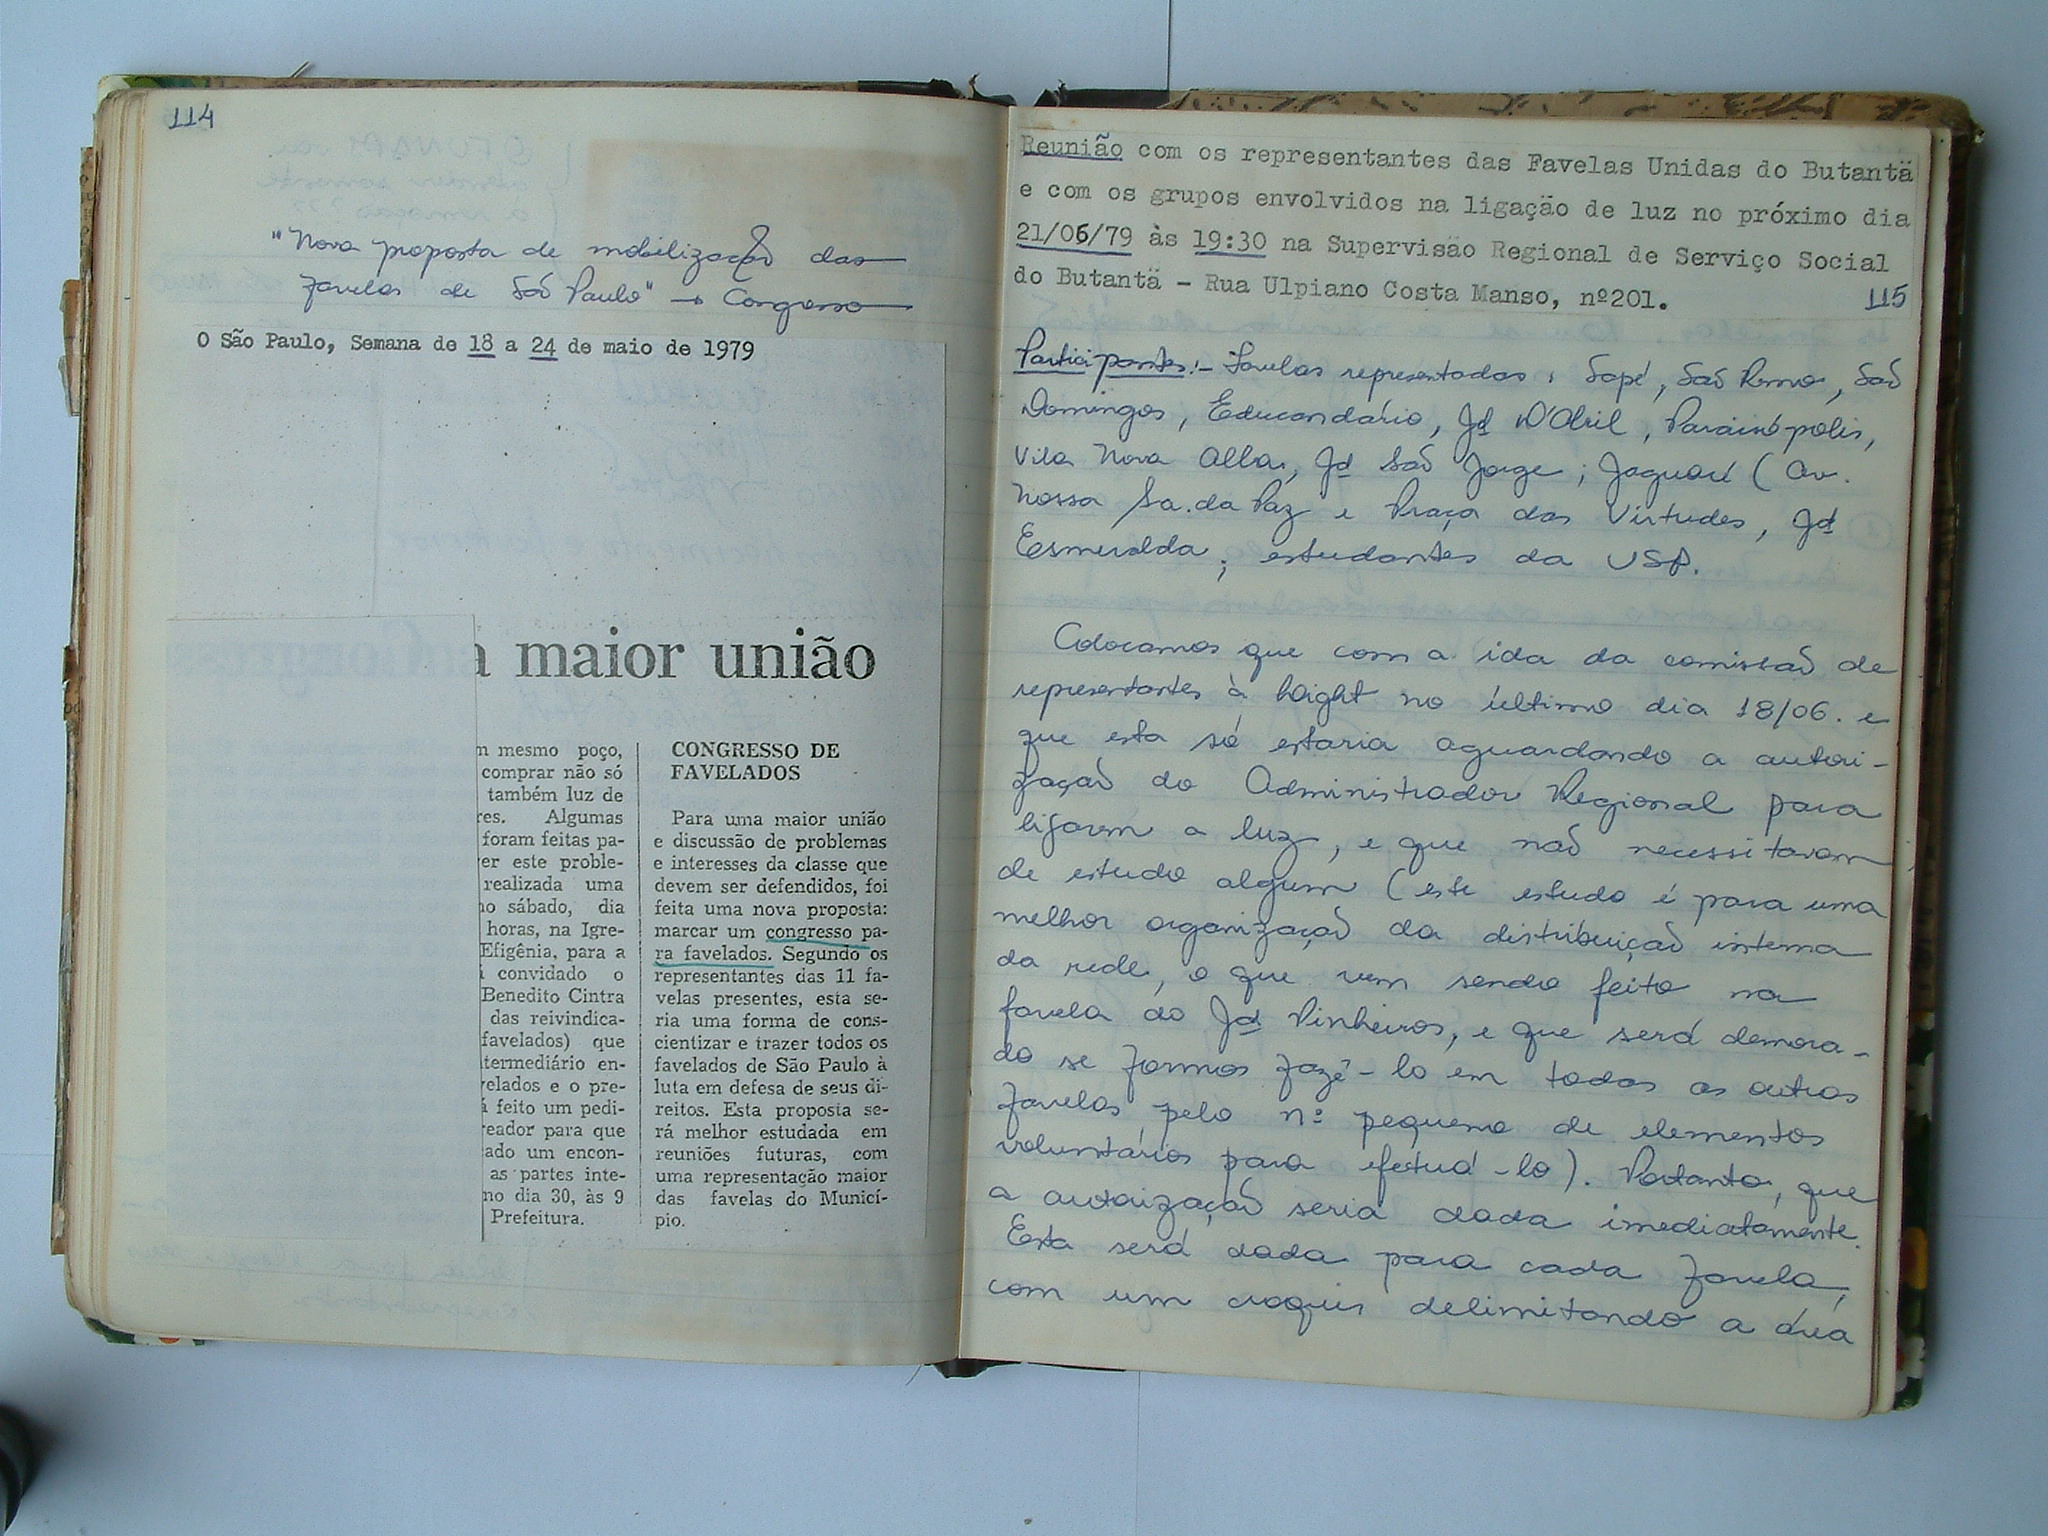 114
"Nova proposta de mobilização das
favelas de São Paulo" → Congresso
O São Paulo, Semana de 18 a 24 de maio de 1979
a maior união
m mesmo poço,
comprar não só
também luz de
res. Algumas
foram feitas pa-
er este proble-
realizada uma
no sábado, dia
horas, na Igre-
Efigênia, para a
convidado o
Benedito Cintra
das reivindica-
favelados) que
termediário en-
velados e o pre-
á feito um pedi-
reador para que
ado um encon-
as partes inte-
no dia 30, às 9
Prefeitura.
CONGRESSO DE
FAVELADOS
Para uma maior união
e discussão de problemas
e interesses da classe que
devem ser defendidos, foi
feita uma nova proposta:
marcar um congresso pa-
ra favelados. Segundo os
representantes das 11 fa-
velas presentes, esta se-
ria uma forma de cons-
cientizar e trazer todos os
favelados de São Paulo à
luta em defesa de seus di-
reitos. Esta proposta se-
rá melhor estudada em
reuniões futuras, com
uma representação maior
das favelas do Municí-
pio.
Reunião com os representantes das Favelas Unidas do Butantä
e com os grupos envolvidos na ligação de luz no próximo dia
21/06/79 às 19:30 na Supervisão Regional de Serviço Social
do Butantä - Rua Ulpiano Costa Manso, nº201.
115
Participantes:- Favelas representadas: Sapé, São Remo, São
Domingos, Educandário, Jd D'Abril, Paraisópolis,
Vila Nova Alba, Jd São Jorge; Jaguaré (Av.
Nossa Sa. da Paz e Praça das Virtudes, Jd
Esmeralda; estudantes da USP.
Colocamos que com a ida da comissão de
representantes à Light no último dia 18/06. e
que esta só estaria aguardando a autori-
zação do Administrador Regional para
ligarem a luz, e que não necessitavam
de estudo algum (este estudo é para uma
melhor organização da distribuição interna
da rede, o que vem sendo feito na
favela do Jd Pinheiros, e que será demora-
do se formos fazê-lo em todas as outras
favelas, pelo nº pequeno de elementos
voluntários para efetuá-lo). Portanto, que
a autorização seria dada imediatamente.
Esta será dada para cada favela,
com um croquis delimitando a área